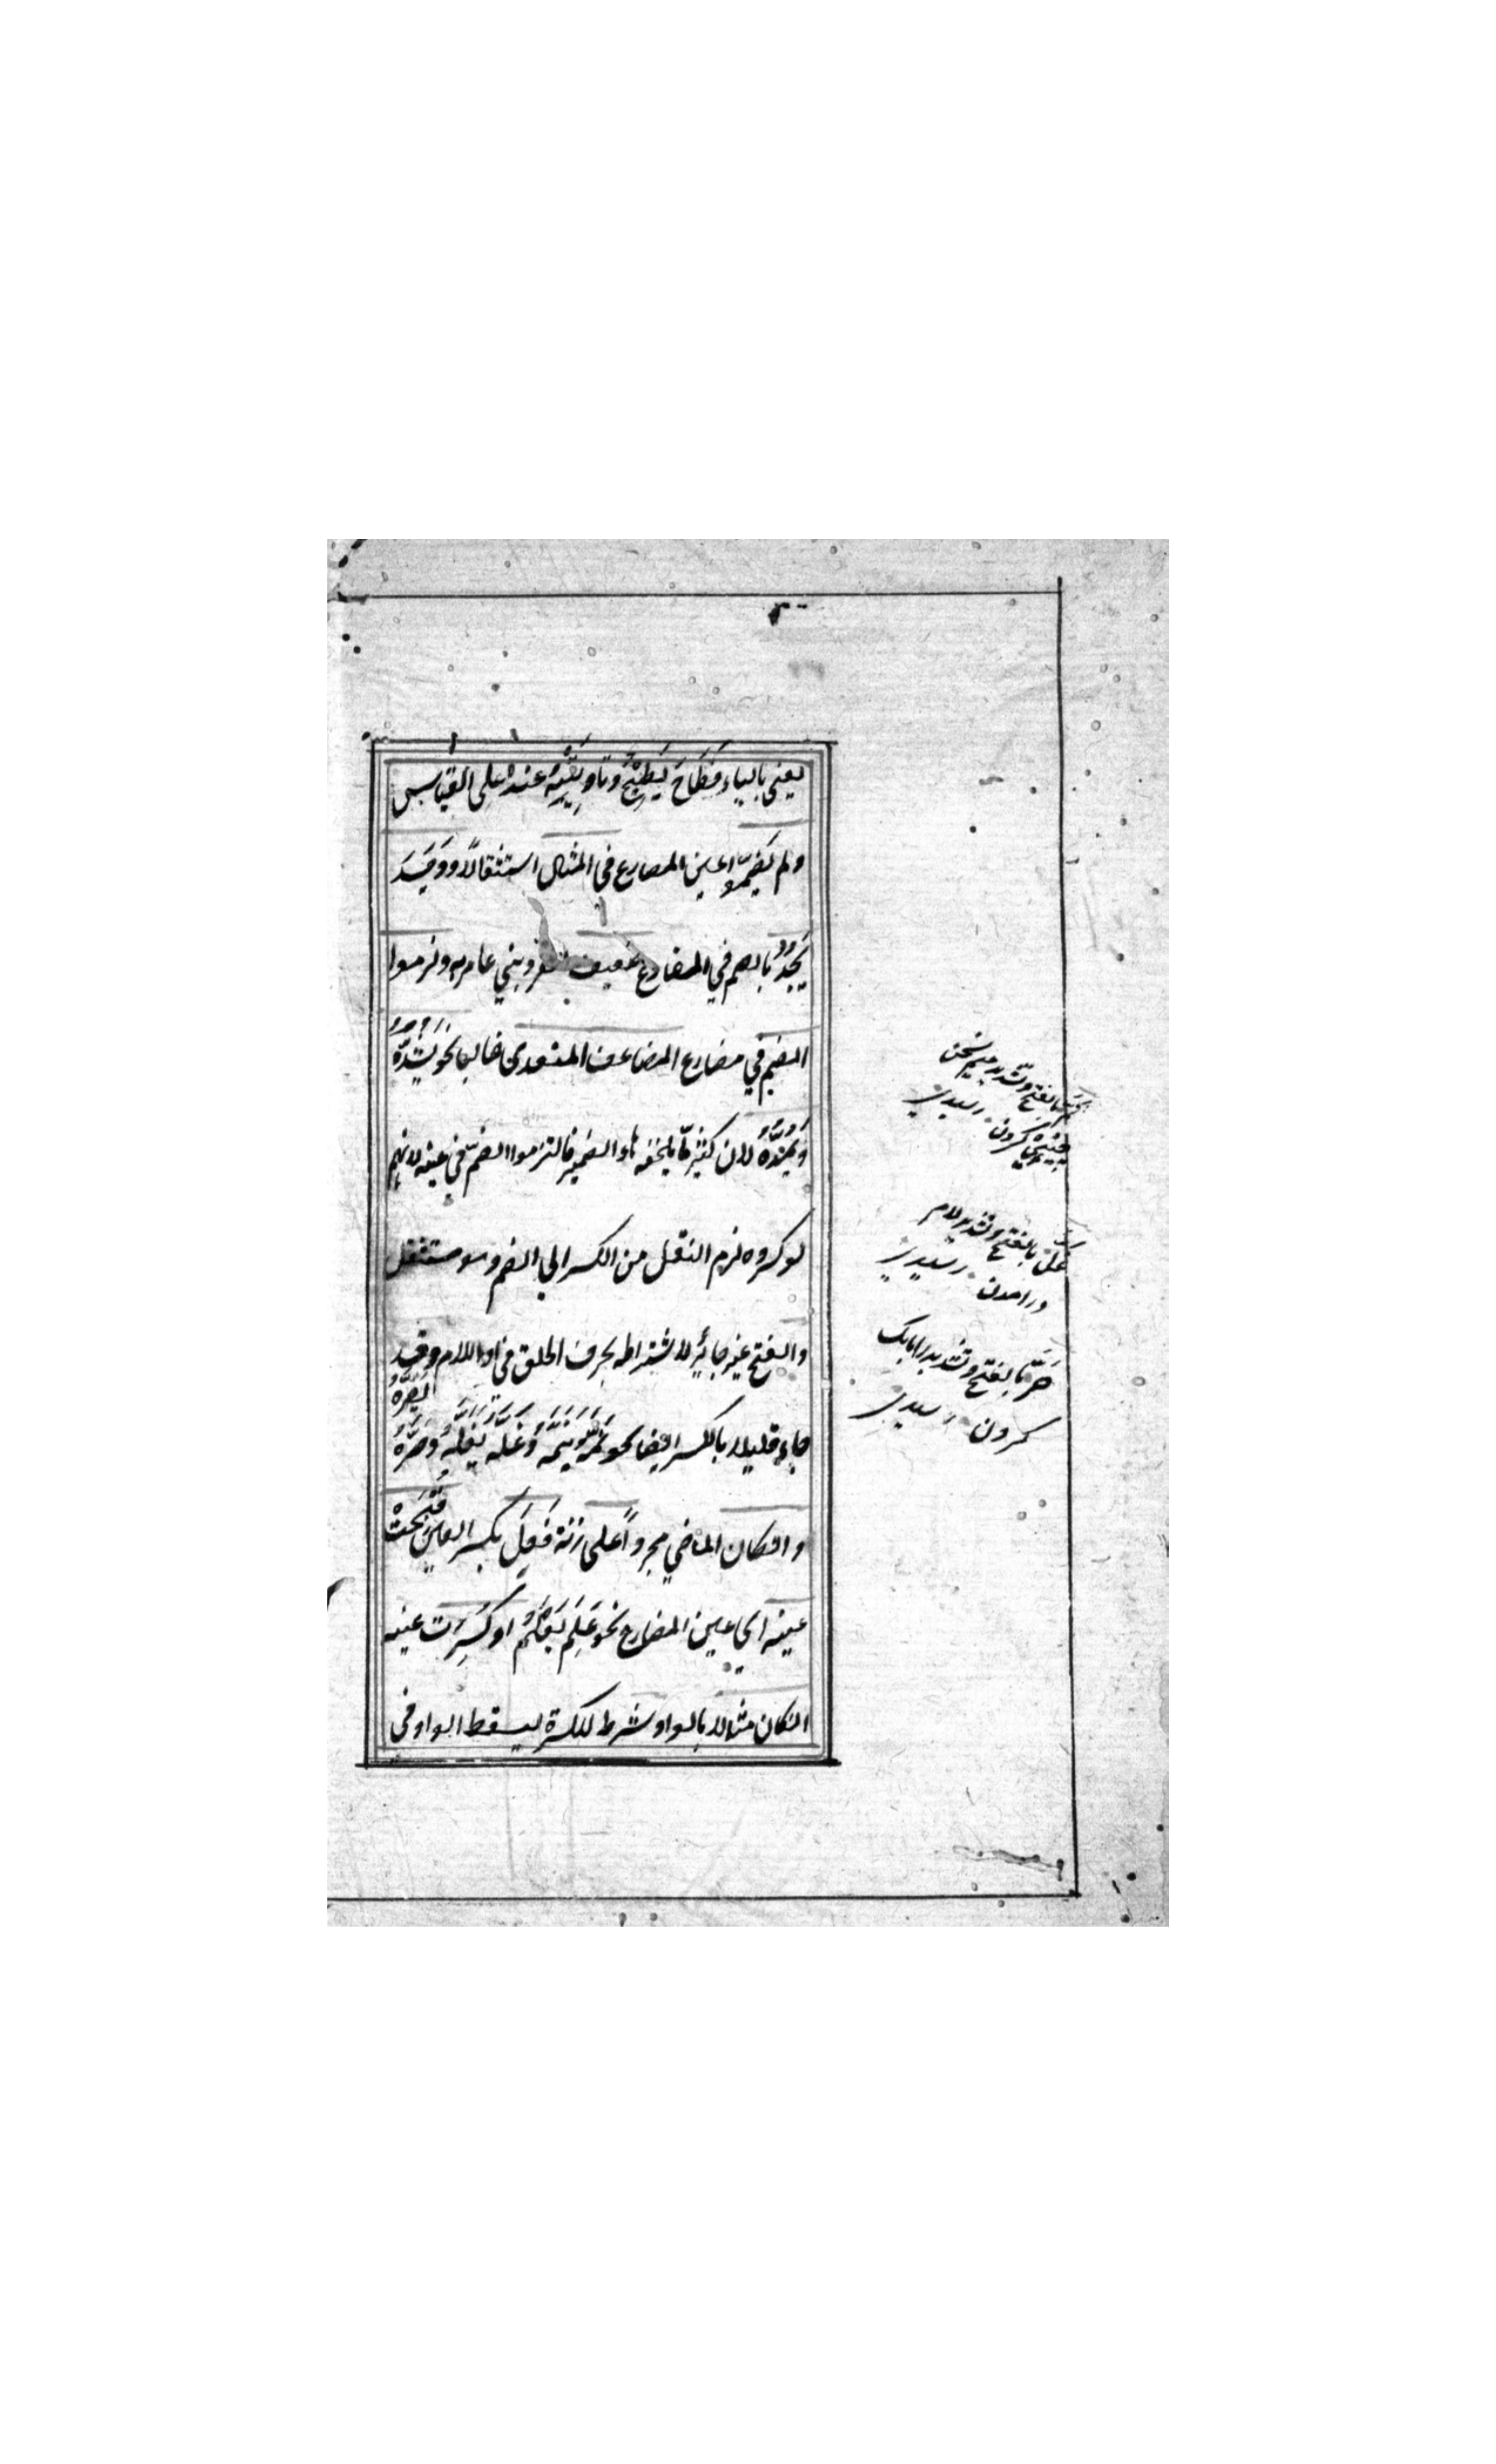 يعني بالياء فَطَاحَ يَطِيْحُ وتاه يَتِيْهُ عنده على القياس
ولم يَضُمّوا عين المضارع في المثال استثقالا ووَجَدَ
يَجُدُ بالضم في المضارع ضعيف بني عامر ولزموا
الضم في مضارع المضاعف المتعدي غالبا نحو يَشُدُّهُ
وَيَمُدُّهُ لان كثيرًا ما يلحقه هاء الضمير فالتزموا الضمّ في عينه لانهم
لو كسروه لزم النقل من الكسر الي الضم وهو مستثقل
والفتح غير جائز لاشتراطه بحرف الحلق في او اللام وقد
جاء قليلا بالكسر ايضا نحو نَمَّهُ يَنِمُّهُ وَعَلَّهُ يَعِلُّهُ وَصَرَّهُ
يَصِرُّهُ
وان كان الماضي مجردًا على زنة فَعِلَ بكسر العين فُتِحَتْ
عينه اي عين المضارع نحو عَلِمَ يَعْلَمُ او كُسِرَت عينه
ان كان مثالا بالواو شرط الكسرة ليسقط الواو في
بالفتح وتشديد ميم سخن
چيني كردن رشيدي
بالفتح وتشديد لام
درامدن رشيدي
صَرّ بالفتح وتشديد را بانك
كردن رشيدي